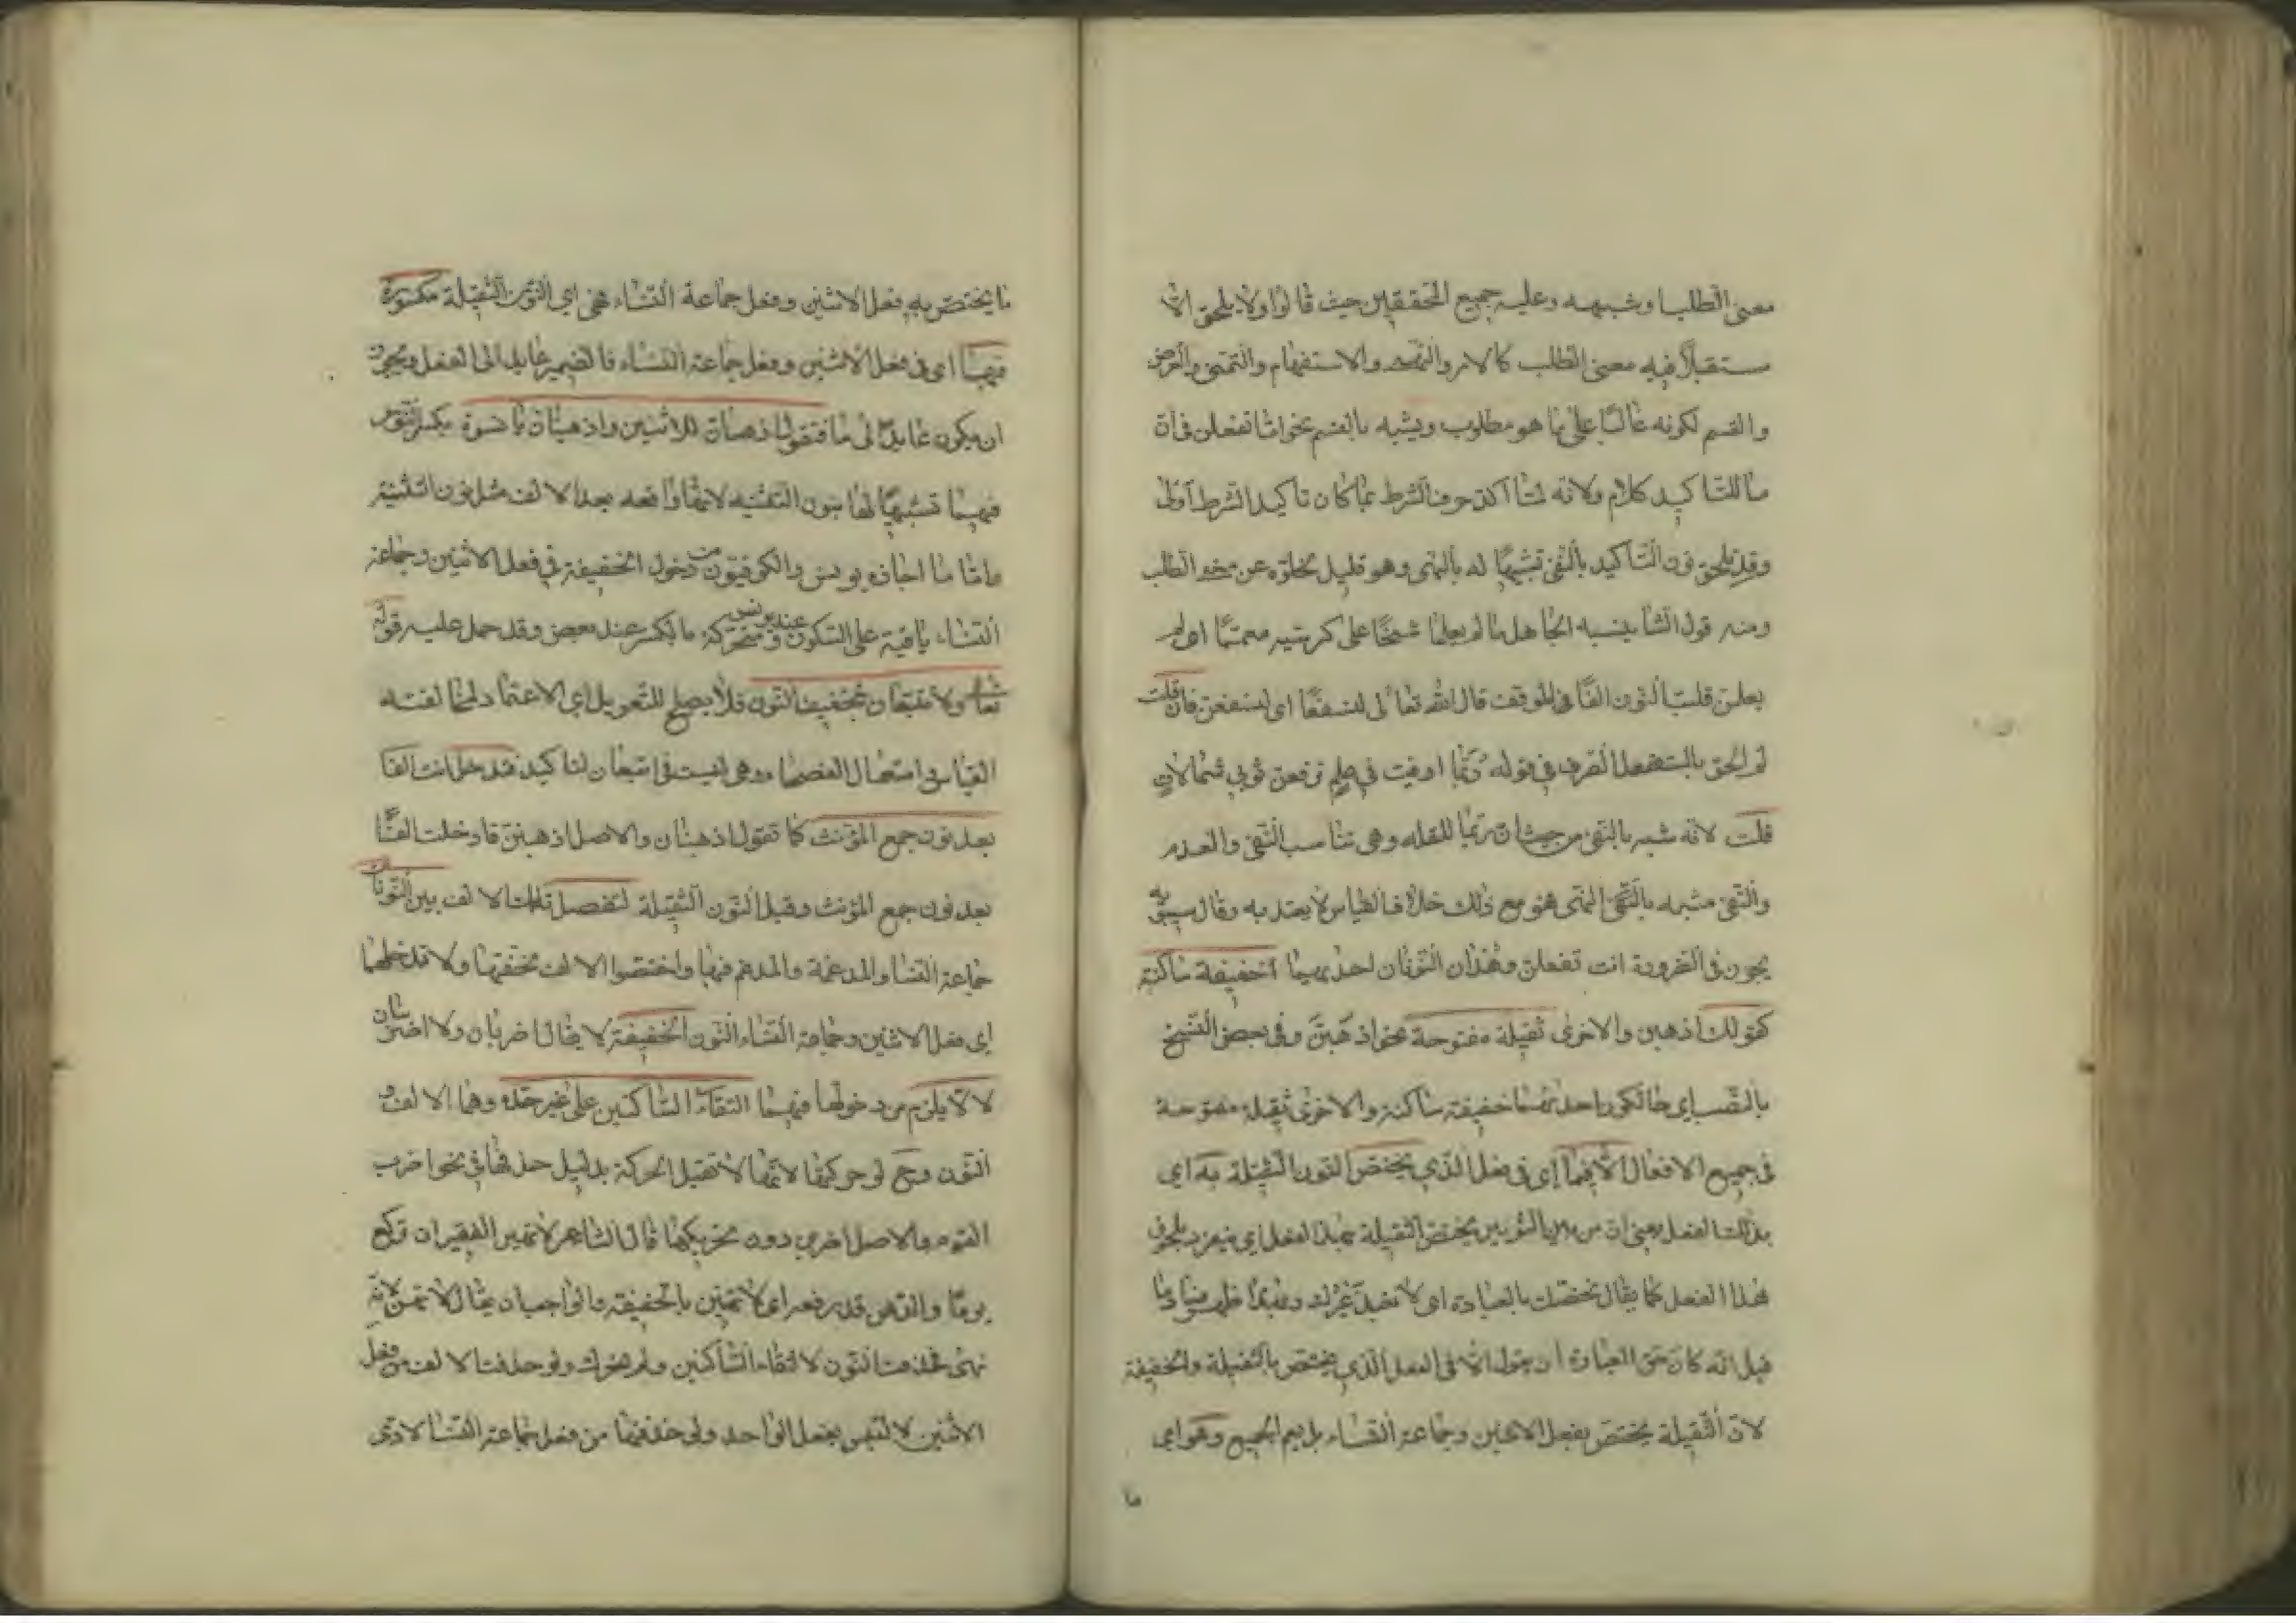 معنى الطلب او شبهه وعليه جميع المحققين حيث قالوا ولا يلحق الا
مستقبلا فيه معنى الطلب كالامر والنهى والاستفهام والتمنى والعرض
والقسم لكونه غالبا على ما هو مطلوب ويشبه بالقسم نحو اما تفعلن فان
ما للتاكيد كلام ولانه لما اكد حرف الشرط بما كان تاكيد الشرط اولى
وقد يلحق نون التاكيد بالنفى تشبيها له بالنهى وهو قليل لخلوه عن معنى الطلب
ومنه قول الشاعر يحسبه الجاهل ما لم يعلما شيخا على كرسيه معمما اى لم
يعلمن قلبت النون الفا فى الوقف قال الله تعالى لنسفعا اى لنسفعن فان قلت
لم الحق بالمستقبل الصرف فى قوله ربما اوفيت فى علم ترفعن ثوبى شمالات
قلت لانه شبه بالنفى من حيث ان ربما للقلة وهى تناسب النفى والعدم
والنفى مشبه بالنهى فهو مع ذلك خلاف القياس لا يعتد به وقال سيبويه
يجوز فى الضرورة انت تفعلن وهذان النونان احديهما خفيفة ساكنة
كقولك اذهبن والاخرى ثقيلة مفتوحة نحو اذهبن وفى بعض النسخ
بالنصب اى حالكون احديهما خفيفة ساكنة والاخرى ثقيلة مفتوحة
فى جميع الافعال الا فيما اى فى فعل الذى يختص النون الثقيلة به اى
بذلك الفعل يعنى ان من بين النونين يختص الثقيلة بهذا الفعل اى ينفرد بلحوق
هذا الفعل كما يقال نخصك بالعبادة اى لا نعبد غيرك وبهذا ظهر فساد ما
قيل انه كان حق العبارة ان يقول الا فى الفعل الذى يختص بالثقيلة والخفيفة
لان الثقيلة يختص بفعل الاثنين وجماعة النساء بل يعم الجميع وهو اى
ما
ما يختص به فعل الاثنين وفعل جماعة النساء فهى اى النون الثقيلة مكسورة
فيهما اى فى فعل الاثنين وفعل جماعة النساء فالضمير عايد الى الفعل ويجوز
ان يكون عايدا الى ما فتقول اذهبان للاثنين واذهبنان يا نسوة بكسر النون
فيهما تشبيها لها بنون التثنية لانها واقعة بعد الالف مثل نون التثنية
واما ما اجازه يونس والكوفيون من دخول الخفيفة فى فعل الاثنين وجماعة
النساء باقية على السكون عند يونس ومتحركة بالكسر عند بعض وقد حمل عليه قوله
تعالى ولا تتبعان بتخفيف النون فلا يصلح للتعويل اى الاعتماد لمخالفته
القياس واستعمال الفصحاء وهى ليست فى تتبعان لتاكيد فتدخل انت الفا
بعد نون جمع المؤنث كما تقول اذهبنان والاصل اذهبنن فادخلت الفا
بعد نون جمع المؤنث وقبل النون الثقيلة لتفصل تلك الالف بين النونات
جماعة النساء والمدغمة والمدغم فيها واختصوا الالف لخفتها ولا تدخلهما
اى فعل الاثنين وجماعة النساء النون الخفيفة لا يقال اضربان ولا اضربنان
لانه يلزم من دخولها فيهما التقاء الساكنين على غير حده وهما الالف و
النون وح لو حركتها لانها لا تقبل الحركة بدليل حذفها فى نحو اضرب
القوم والاصل اضربن دون تحريكها قال الشاعر لا تهين الفقير ان تركع
يوما والدهر قد رفعه اى لا تهينن بالخفيفة والواجب ان يقال لا تهن لانه
نهى فحذفت النون لالتقاء الساكنين ولم تحرك ولو حذفت الالف من فعل
الاثنين لالتبس بفعل الواحد ولو حذفتها من فعل جماعة النساء لادى